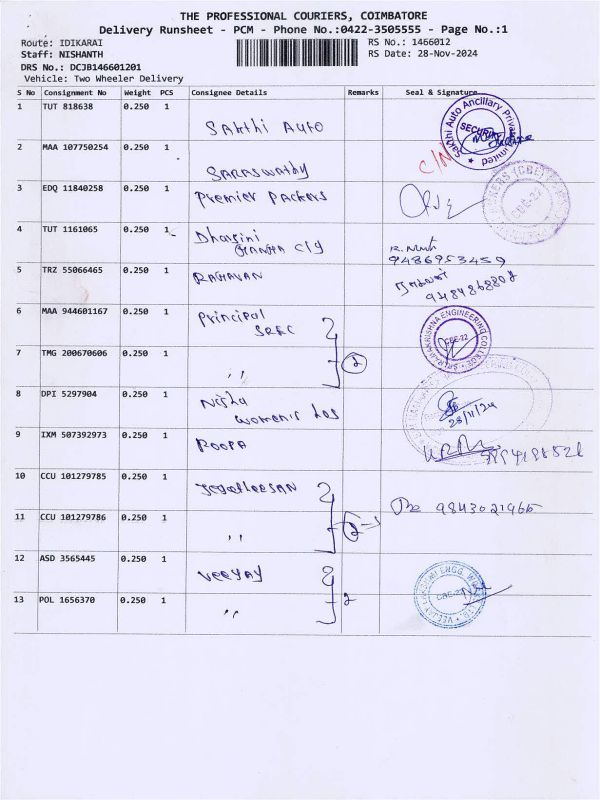 THE PROFESSIONAL COURIERS, COIMBATORE
Delivery Runsheet - PCM - Phone No.:0422-3505555 - Page No.:1
Route: IDIKARAI RS No.: 1466012
Staff: NISHANTH RS Date: 28-Nov-2024
DRS No.: DCJB146601201
Vehicle: Two Wheeler Delivery
S No Consignment No Weight PCS Consignee Details Remarks Seal & Signature
1 TUT 818638 0.250 1 Sakthi Auto
Sakthi Auto Ancillary Private Limited
SECURITY
2 MAA 107750254 0.250 1 SARASWAThy C/N
3 EDQ 11840258 0.250 1 Premier Packers
CBE-22
4 TUT 1161065 0.250 1 Dharsini
9486953459
5 TRZ 55066465 0.250 1 RAGHAVAN
6 MAA 944601167 0.250 1 Principal
SREC
SRI RAMAKRISHNA ENGINEERING COLLEGE
CBE-22
7 TMG 200670606 0.250 1 ,, 2
8 DPI 5297904 0.250 1 Nisha
Women's
28/11/24
9 IXM 507392973 0.250 1 ROOPA
10 CCU 101279785 0.250 1 JegatheesAN
9843021966
11 CCU 101279786 0.250 1 ,, 2
12 ASD 3565445 0.250 1 VEEJAY
VEEJAY LAKSHMI ENGG. WORKS
CBE-22
13 POL 1656370 0.250 1 ,, 2